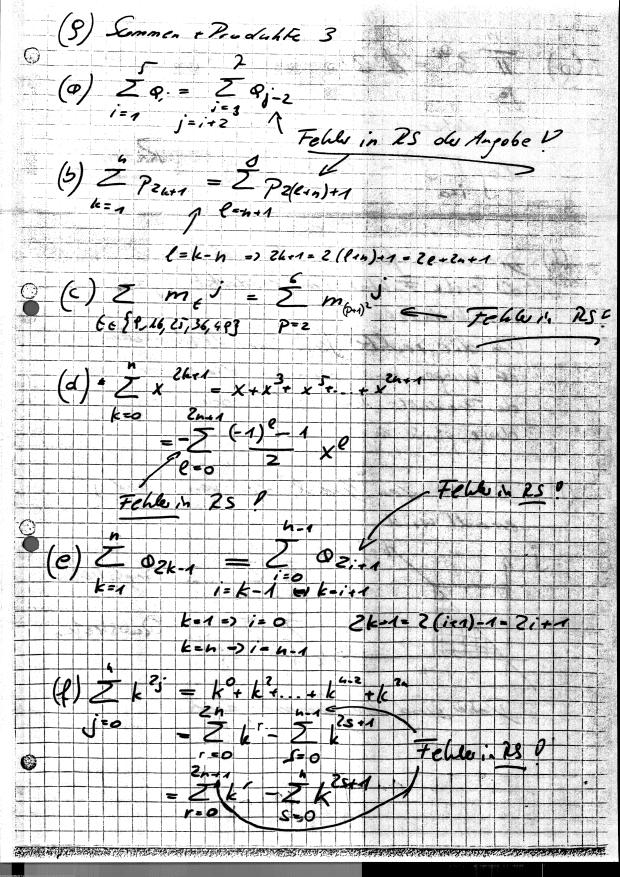 (9) Summen + Produkte 3
(a) ∑_{i=1}^{5} a_i = ∑_{i=3}^{7} a_{j-2}
j=i+2
Fehler in RS der Angabe!
(b) ∑_{k=1}^{n} P_{2k+1} = ∑_{l=n+1}^{0} P_{2(l+n)+1}
l=k-n => 2k+1 = 2(l+n)+1 = 2l+2n+1
(c) ∑_{t∈{9,16,25,36,49}} m_t^j = ∑_{p=2}^{6} m_{(p+1)^2}^j
Fehler in RS!
(d) ∑_{k=0}^{n} x^{2k+1} = x+x^3+x^5+...+x^{2n+1}
= -∑_{l=0}^{2n+1} ((-1)^l - 1)/2 x^l
Fehler in RS!
Fehler in RS!
(e) ∑_{k=1}^{n} a_{2k-1} = ∑_{i=0}^{n-1} a_{2i+1}
i=k-1 k=i+1
k=1 => i=0 2k-1=2(i+1)-1=2i+1
k=n => i=n-1
(f) ∑_{j=0}^{n} k^{2j} = k^0+k^2+...+k^{n-2}+k^{2n}
= ∑_{r=0}^{2n} k^r - ∑_{s=0}^{n-1} k^{2s+1}
Fehler in RS!
= ∑_{r=0}^{2n+1} k^r - ∑_{s=0}^{n} k^{2s+1}